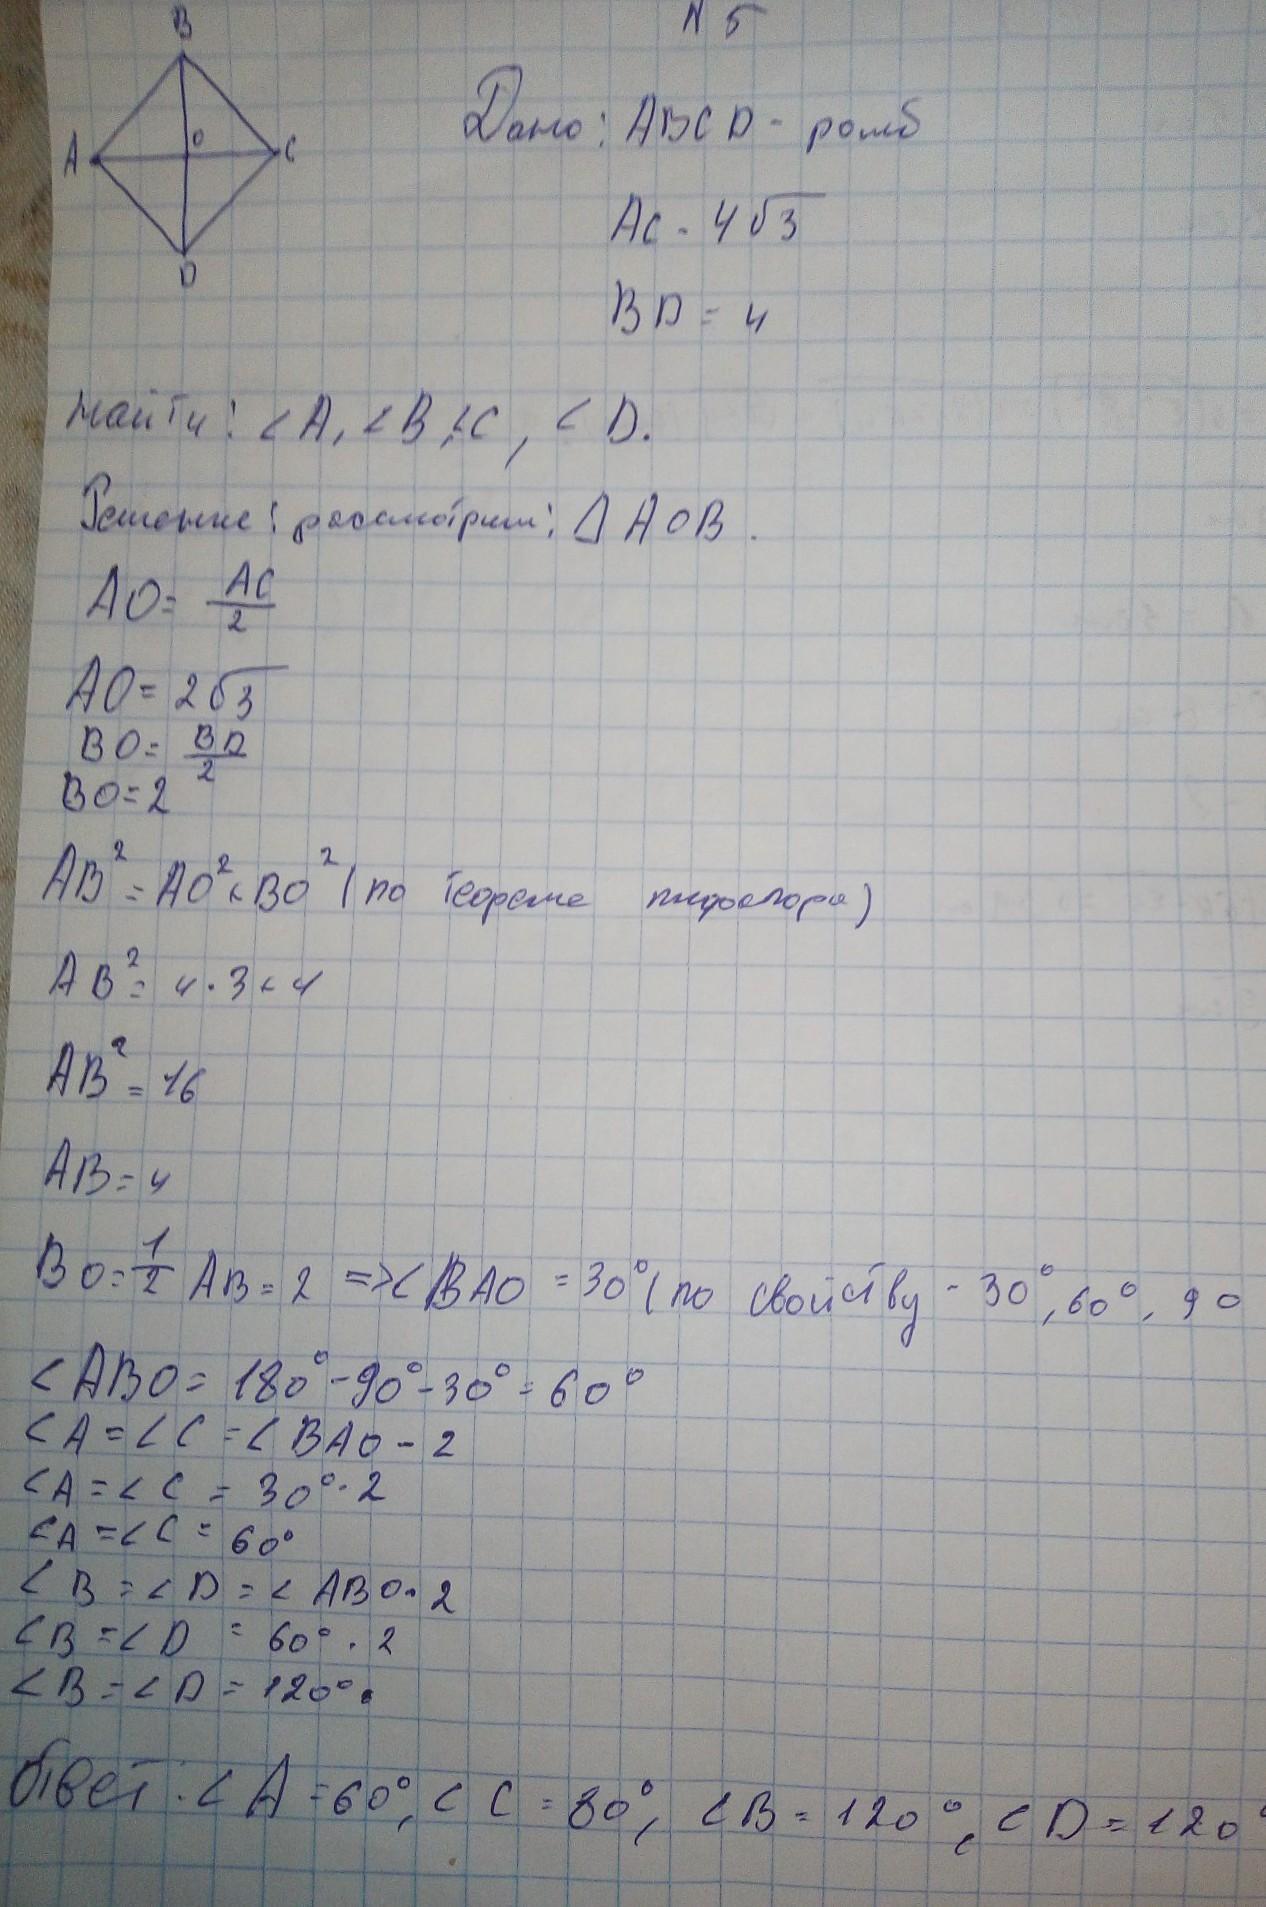 N 5
B
A
O
C
D
Дано: ABCD - ромб
AC - 4√3
BD = 4
Найти: <A, <B, <C, <D.
Решение: рассмотрим: △AOB.
AO = AC/2
AO = 2√3
BO = BD/2
BO = 2
AB² = AO² + BO² (по теореме пифагора)
AB² = 4 · 3 + 4
AB² = 16
AB = 4
BO = 1/2 AB = 2 => <BAO = 30° (по свойству - 30°, 60°, 90
<ABO = 180° - 90° - 30° = 60°
<A = <C = <BAO - 2
<A = <C = 30° · 2
<A = <C = 60°
<B = <D = <ABO · 2
<B = <D = 60° · 2
<B = <D = 120°.
Ответ: <A = 60°, <C = 80°, <B = 120°, <D = 120°